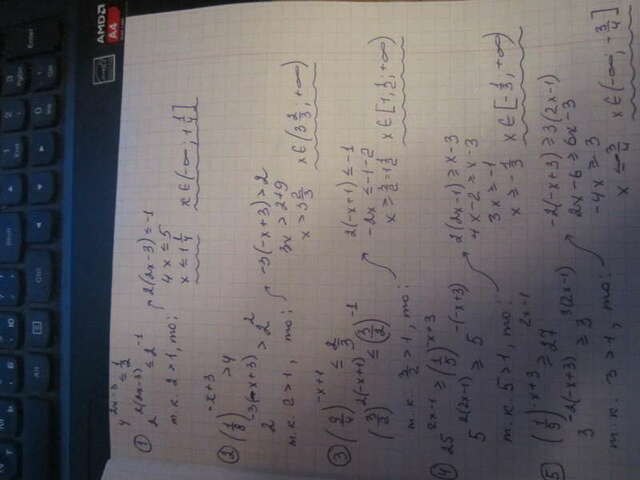 ① 4^(2x-3) ≤ 1/2
2^(2(2x-3)) ≤ 2^(-1)
т.к. 2>1, то:
2(2x-3) ≤ -1
4x ≤ 5
x ≤ 1 1/4
x∈(-∞; 1 1/4]
② (1/8)^(-x+3) > 4
2^(-3(-x+3)) > 2^2
т.к. 2>1, то:
-3(-x+3) > 2
3x > 2+9
x > 3 2/3
x∈(3 2/3; +∞)
③ (9/4)^(-x+1) ≤ 2/3
(3/2)^(2(-x+1)) ≤ (3/2)^(-1)
т.к. 3/2 > 1, то:
2(-x+1) ≤ -1
-2x ≤ -1-2
x ≥ 3/2 = 1 1/2
x∈[1 1/2; +∞)
④ 25^(2x-1) ≥ (1/5)^(-x+3)
5^(2(2x-1)) ≥ 5^(-(-x+3))
т.к. 5>1, то:
2(2x-1) ≥ x-3
4x-2 ≥ x-3
3x ≥ -1
x ≥ -1/3
x∈[-1/3; +∞)
⑤ (1/9)^(-x+3) ≥ 27^(2x-1)
3^(-2(-x+3)) ≥ 3^(3(2x-1))
т.к. 3>1, то:
-2(-x+3) ≥ 3(2x-1)
2x-6 ≥ 6x-3
-4x ≥ 3
x ≤ -3/4
x∈(-∞; -3/4]
AMD
A4
Enter
Ctrl